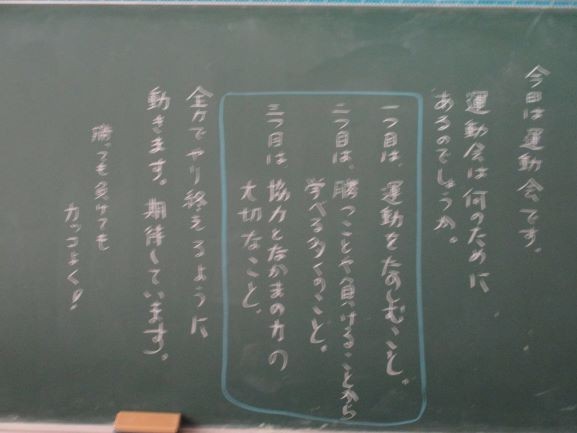 今日は運動会です。
運動会は何のために
あるのでしょうか。
一つ目は、運動をたのしむこと。
二つ目は、勝つことや負けることから
学べる多くのこと。
三つ目は、協力となかまの力の
大切なこと。
全力でやり終えるように
動きます。期待しています。
勝っても負けても
カッコよく！